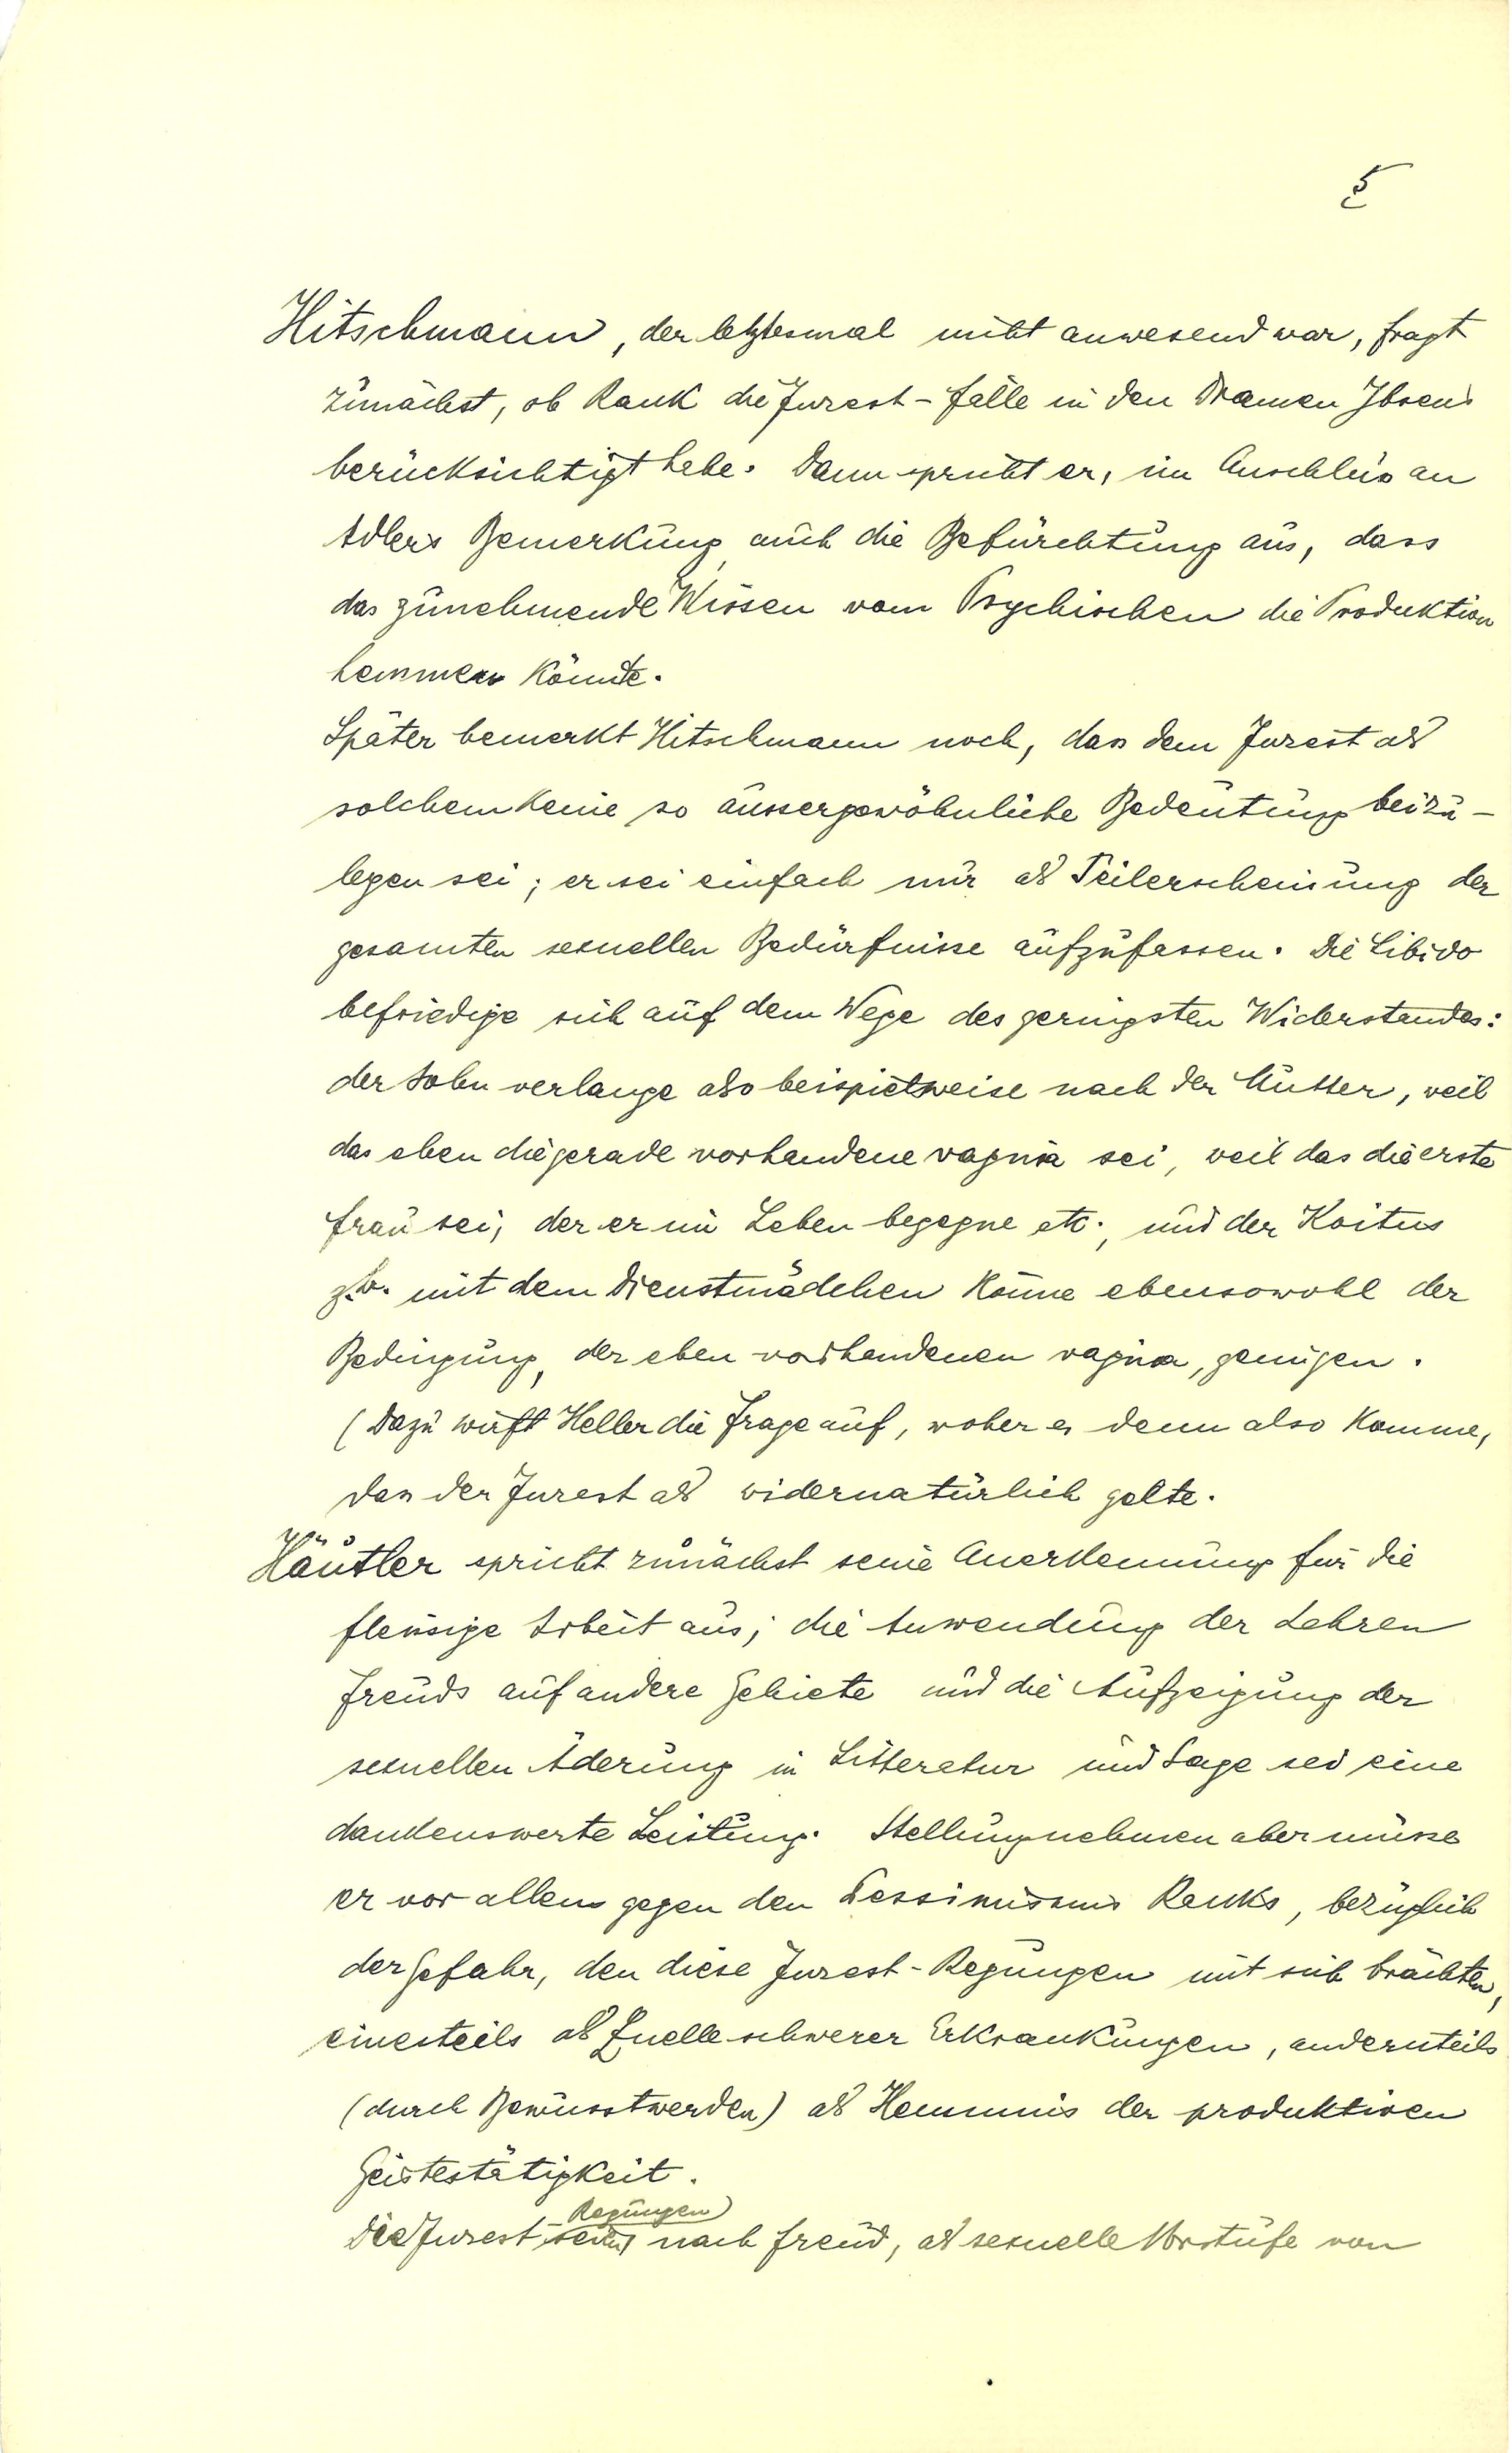 5
Hitschmann, der letztesmal nicht anwesend war, fragt
zunächst, ob Rank die Inzest-fälle in den Dramen Ibsens
berücksichtigt habe. Dann spricht er, im Anschluss an
Adlers Bemerkung, auch die Befürchtung aus, dass
das zunehmende Wissen vom Psychischen die Produktion
hemmen könnte.
Später bemerkt Hitschmann noch, dass dem Inzest als
solchem keine so aussergewöhnliche Bedeutung beizu-
legen sei; er sei einfach nur als Teilerscheinung der
gesamten sexuellen Bedürfnisse aufzufassen. Die Libido
befriedige sich auf dem Wege des geringsten Widerstandes:
der Sohn verlange also beispielsweise nach der Mutter, weil
das eben die gerade vorhandene vagina sei, weil das die erste
Frau sei, der er im Leben begegne etc., und der Koitus
z.B. mit dem Dienstmädchen könne ebensowohl der
Bedingung, der eben vorhandenen vagina, genügen.
(Dazu wirft Heller die Frage auf, woher es denn also komme,
dass der Inzest als widernatürlich gelte.
Häutler spricht zunächst seine Anerkennung für die
fleissige Arbeit aus; die Anwendung der Lehren
Freuds auf andere Gebiete und die Aufzeigung der
sexuellen Äderung in Litteratur und Sage sei eine
dankenswerte Leistung. Stellung nehmen aber müsse
er vor allem gegen den Pessimismus Ranks, bezüglich
der Gefahr, den diese Inzest-Regungen mit sich brächten,
einesteils als Quelle schwerer Erkrankungen, andernteils
(durch Bewusstwerden) als Hemmnis der produktiven
Geistestätigkeit.
Regungen
Die Inzest- seien nach Freud, als sexuelle Vorstufe von